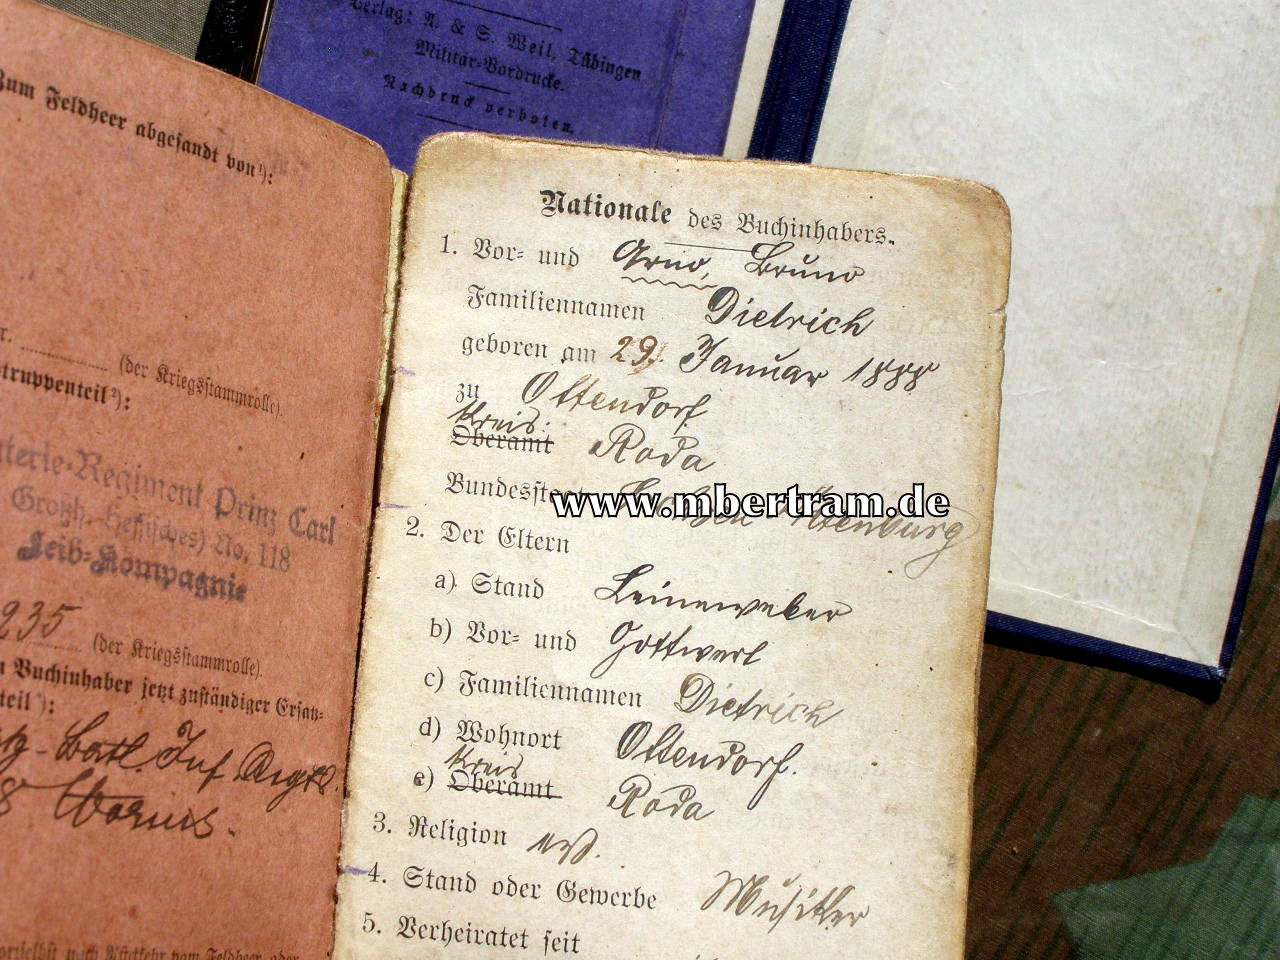 Verlag: A. & S. Weil, Tübingen
Militär-Vordrucke.
Nachdruck verboten.
Zum Feldheer abgesandt von¹):
(der Kriegsstammrolle).
truppenteil²):
terie-Regiment Prinz Carl
Großh. Hessisches) No. 118
Leib-Kompagnie
235
(der Kriegsstammrolle).
n Buchinhaber jetzt zuständiger Ersatz-
teil³):
Batl. Inf. Regts.
8 Worms.
Nationale des Buchinhabers.
1. Vor- und Arno, Bruno
Familiennamen Dietrich
geboren am 29. Januar 1888
zu Ottendorf
Kreis
Oberamt Roda
Bundesstaat Sachsen Altenburg
www.mbertram.de
2. Der Eltern
a) Stand Leineweber
b) Vor- und
c) Familiennamen Dietrich
d) Wohnort Ottendorf.
Kreis
e) Oberamt Roda
3. Religion ev.
4. Stand oder Gewerbe Musiker
5. Verheiratet seit